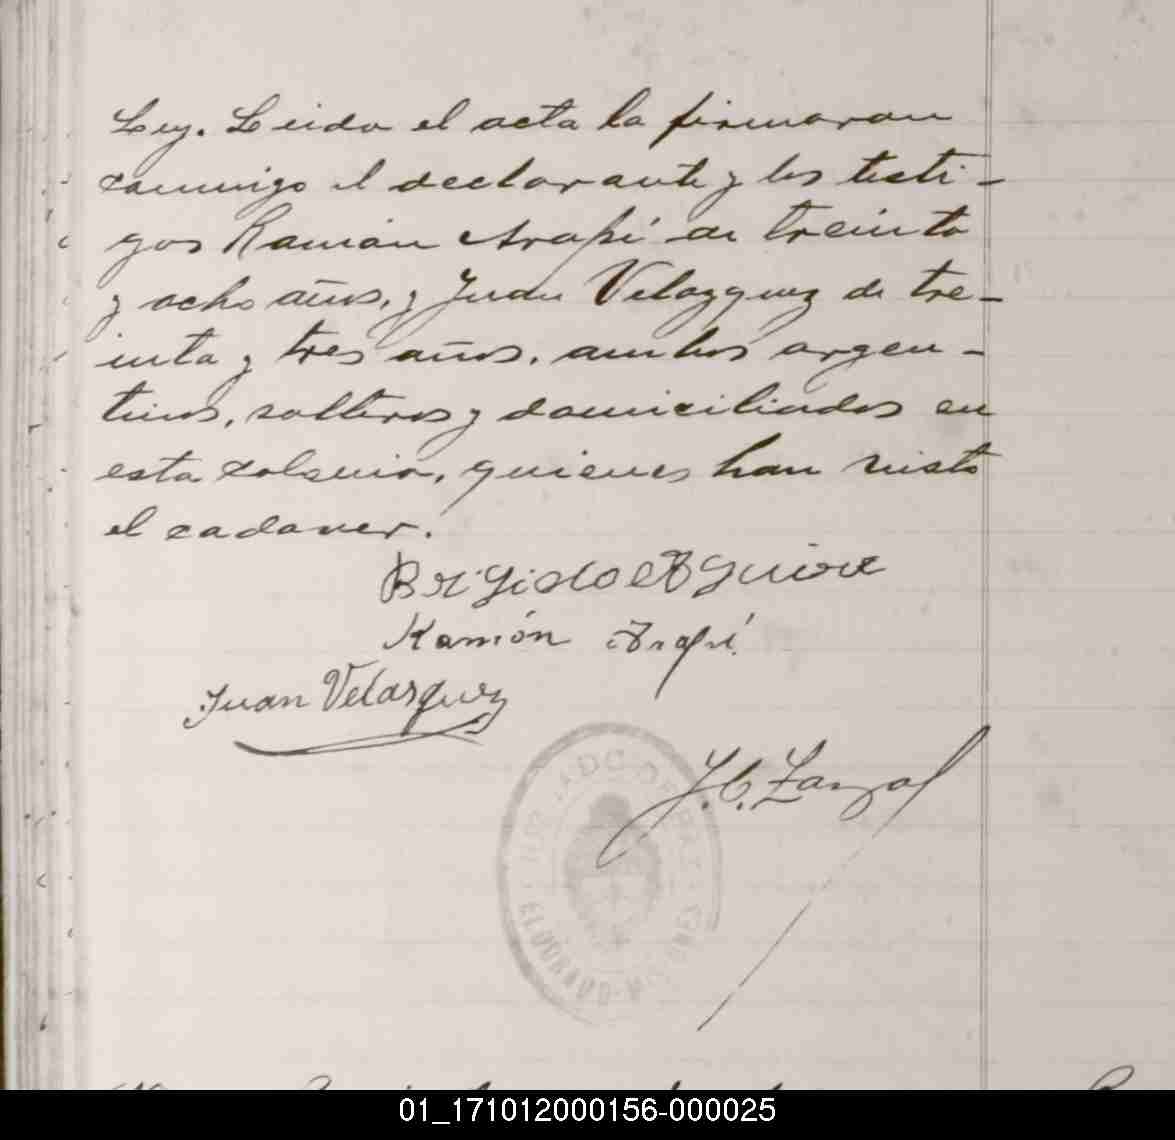 Ley. Leida el acta la firmaron
conmigo el declarante y los testi-
gos Ramón Arapí de treinta
y ocho años, y Juan Velazquez de tre-
inta y tres años, ambos argen-
tinos, solteros y domiciliados en
esta colonia, quienes han visto
el cadaver.
Brigido Aguirre
Ramón Arapí
Juan Velasquez
J. C. Zarzal
JUZGADO DE PAZ
ELDORADO - MISIONES
01_171012000156-000025